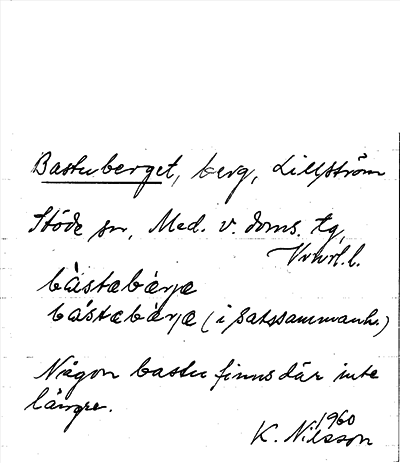 Bastuberget, berg, Lillström
Stöde sn, Med. v. doms. tg,
Vnrl. l.
bàstæbàrjæ
bástæbàrjæ (i satssammanh.)
Någon bastu finns där inte
längre.
1960
K. Nilsson